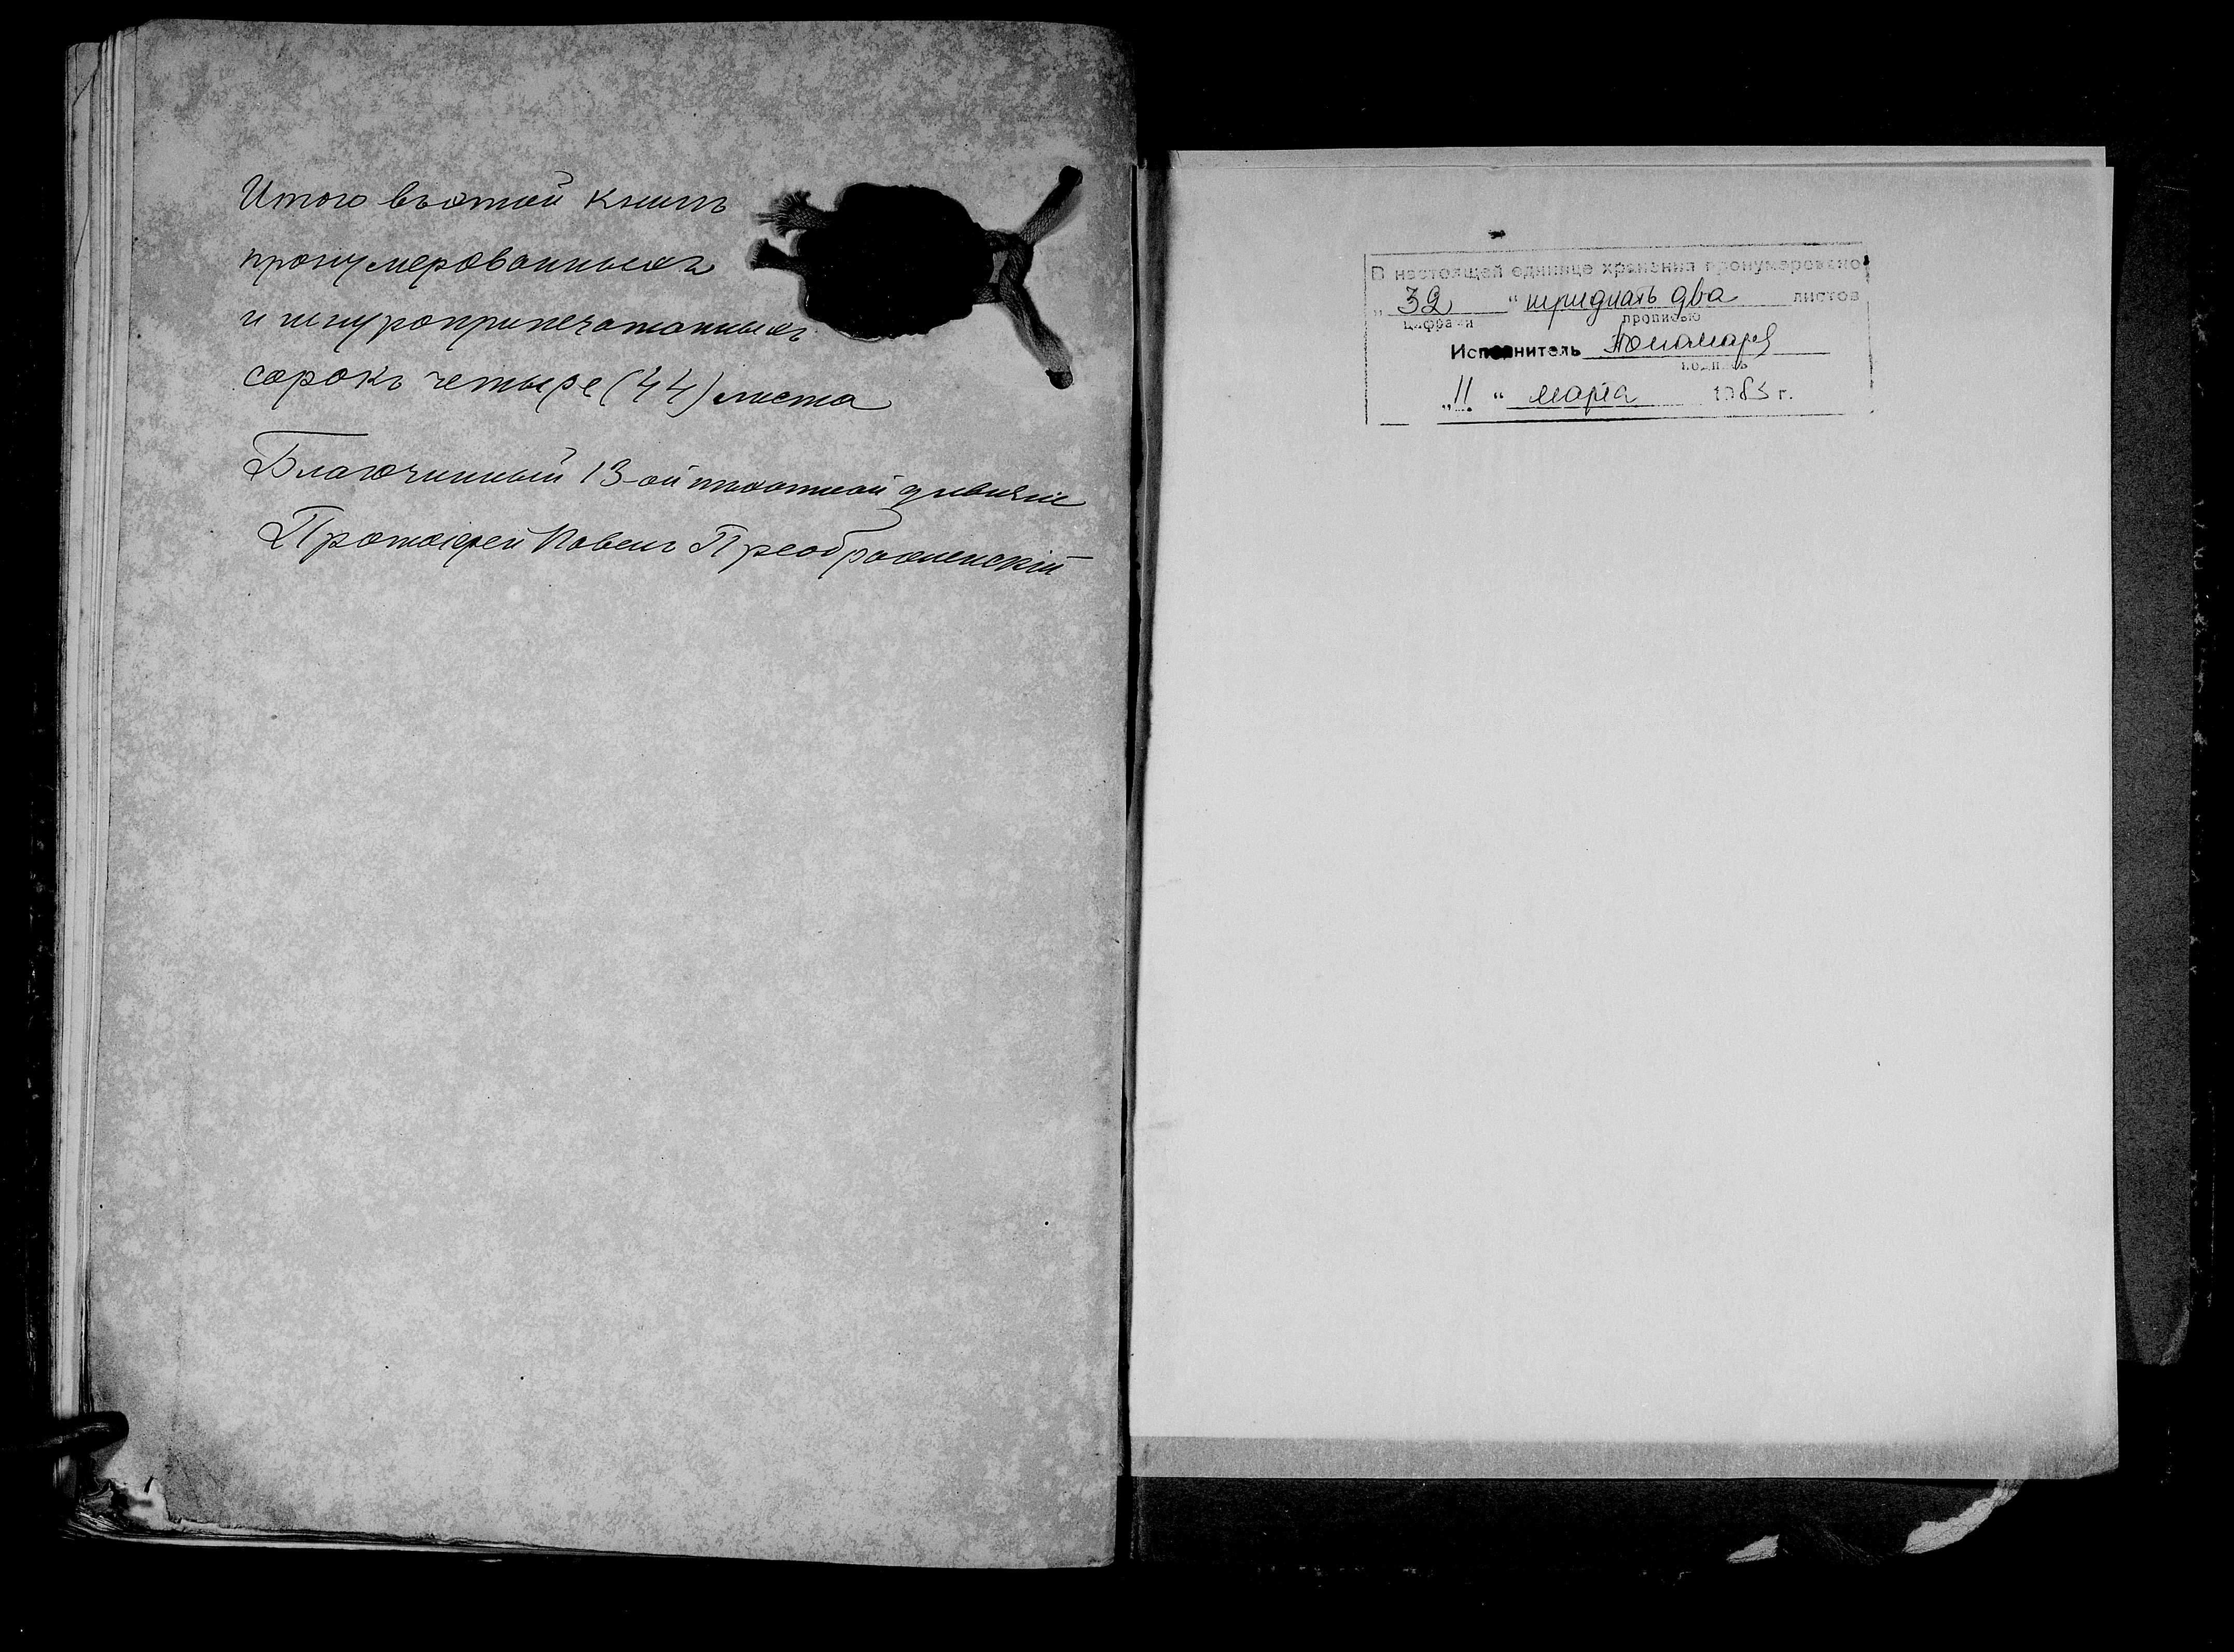 Итого въ этой книгѣ
пронумерованныхъ
и шнуроприпечатанныхъ
сорокъ четыре (44) листа
Благочинный 13-ой пѣхотной дивизіи
Протоіерей Павелъ Преображенскій
В настоящей единице хранения пронумеровано
„ 32 “ тридцать два листов
цифрами прописью
Исполнитель Пономарев
подпись
„ 11 “ марта 1983 г.